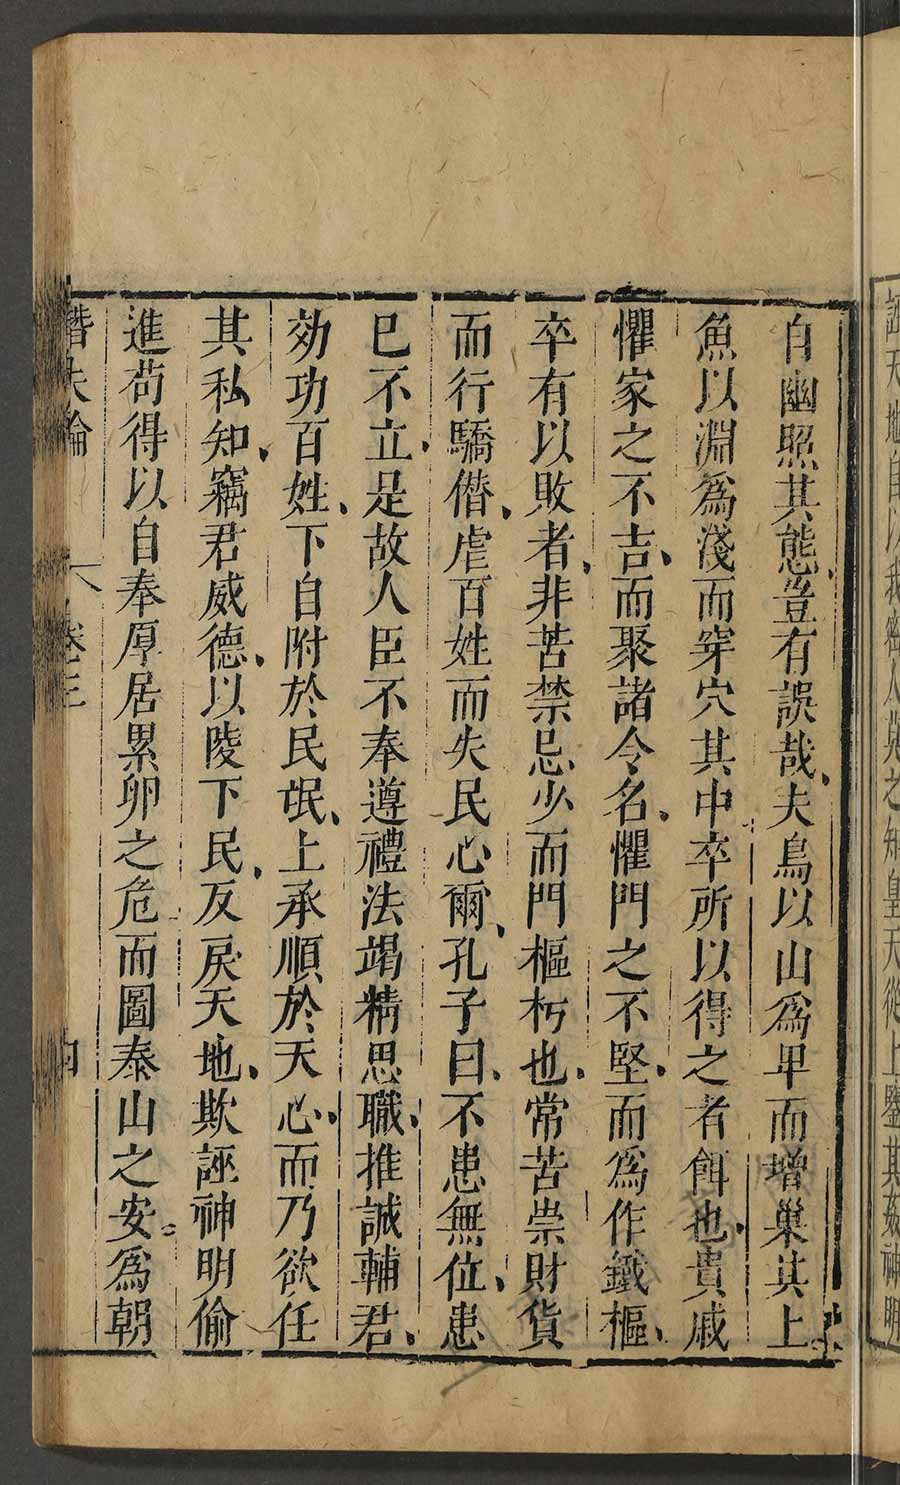 自幽照其態豈有誤哉夫鳥以山爲卑而增巢其上
魚以淵爲淺而穿穴其中卒所以得之者餌也貴戚
懼家之不吉而聚諸令名懼門之不堅而爲作鐵樞
卒有以敗者非苦禁忌少而門樞朽也常苦崇財貨
而行驕僭虐百姓而失民心爾孔子曰不患無位患
已不立是故人臣不奉遵禮法竭精思職推誠輔君
効功百姓下自附於民氓上承順於天心而乃欲任
其私知竊君威德以陵下民反戾天地欺誣神明偷
進苟得以自奉厚居累卵之危而圖泰山之安爲朝
潛夫論 卷三 四
誣天地自以我密人莫之知皇天從上鑒其姦神明